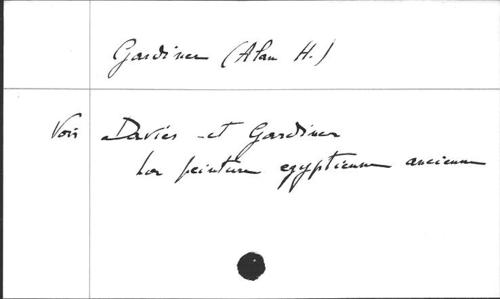 Gardiner (Alan H.)
Voir Davies et Gardiner
La peinture egyptienne ancienne